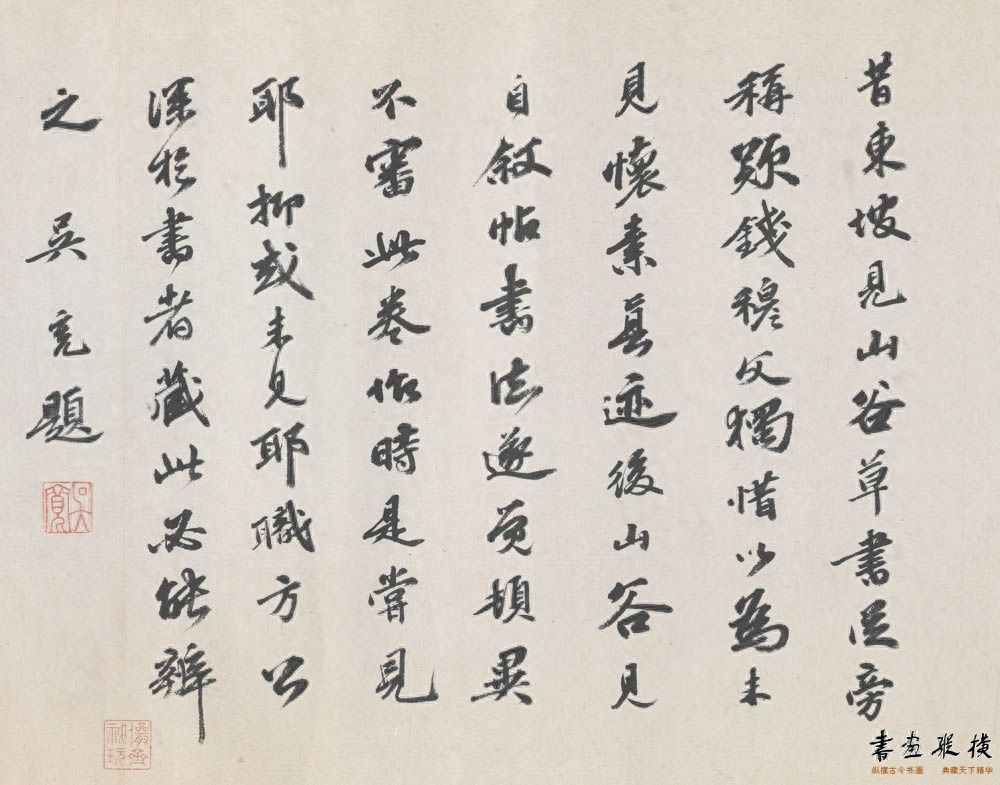 昔東坡見山谷草書從旁
稱歎錢穆父獨惜以為未
見懷素真迹後山谷見
自敘帖書法遂覺頓異
不審此卷作時是嘗見
耶抑或未見耶職方公
深於書者藏此必能辨
之 吳寬題
吳寬
書畫縱橫
纵横古今书画 典藏天下精华